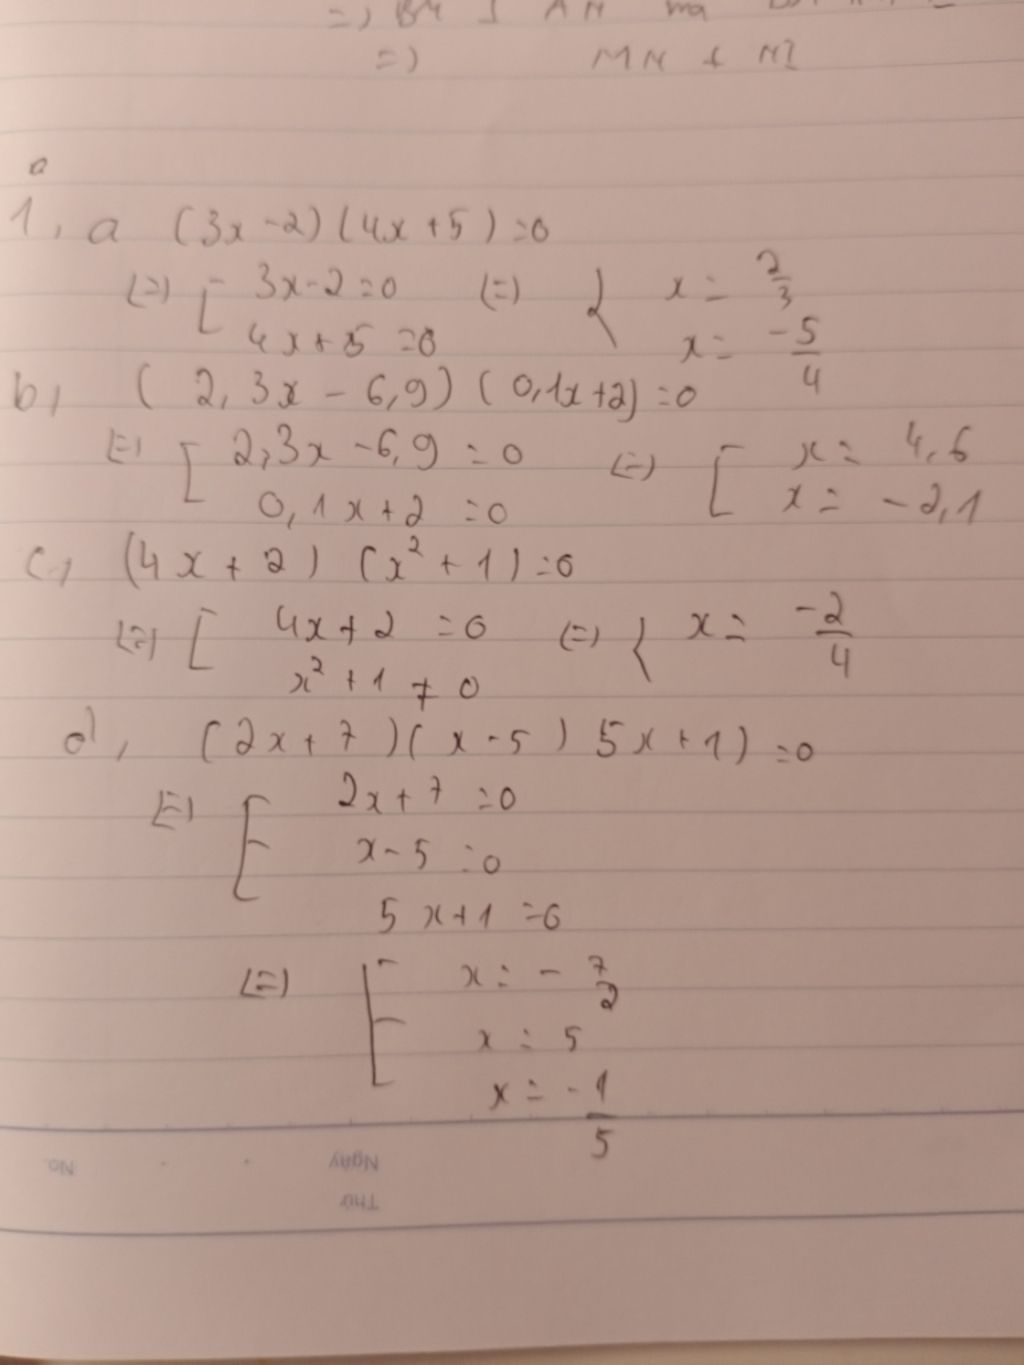 =) BM ⊥ AN mà
=) MN ⊥ NI
a
1, a (3x-2)(4x+5)=0
(=) [ 3x-2=0 (=) { x = 2/3
4x+5=0 x = -5/4
b, (2,3x - 6,9)(0,1x+2)=0
(=) [ 2,3x-6,9=0 (=) [ x = 4,6
0,1x+2=0 x = -2,1
c, (4x+2)(x²+1)=0
(=) [ 4x+2=0 (=) { x = -2/4
x²+1≠0
d, (2x+7)(x-5)5x+1)=0
(=) [ 2x+7=0
x-5=0
5x+1=0
(=) [ x = -7/2
x = 5
x = -1/5
No.
Ngày
Thứ